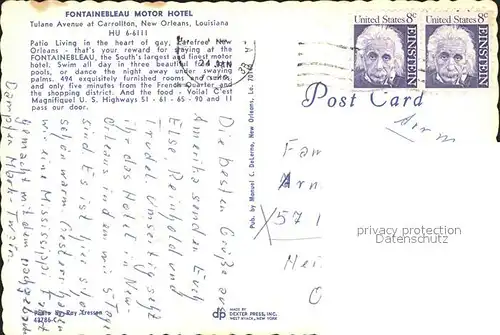 FONTAINEBLEAU MOTOR HOTEL
Tulane Avenue at Carrollton, New Orleans, Louisiana
HU 6-6111
Patio Living in the heart of gay, carefree New
Orleans - that's yours for staying at the
FONTAINEBLEAU, the South's largest and finest motor
hotel. Swim all day in the beautiful
pools, or dance the night away under swaying
palms. 494 exquisitely furnished rooms and suites,
and only five minutes from the French Quarter and
the shopping district. And the food - Voila! C'est
Magnifique! U. S. Highways 51 - 61 - 65 - 90 and 11
pass our door.
United States 8c
EINSTEIN
United States 8c
EINSTEIN
Post Card
Die besten Grüße aus
Amerika senden Euch
Else, Reinhold und
Trudel. Umseitig seht
Ihr das Hotel in New-
Orleans in dem wir 5 Tage
sind. Es ist hier schon
sehr warm. Gestern haben
wir eine Mississippi
gemacht mit dem nachgebauten
Dampfer Mark-Twain.
Pub. by Manuel C. DeLerno, New Orleans, La. 70166
Fam
Arn
X 571
Hei
O
privacy protection
Datenschutz
Photo by Ray Cresson
42786-C
dp
MADE BY
DEXTER PRESS, INC.
WEST NYACK, NEW YORK